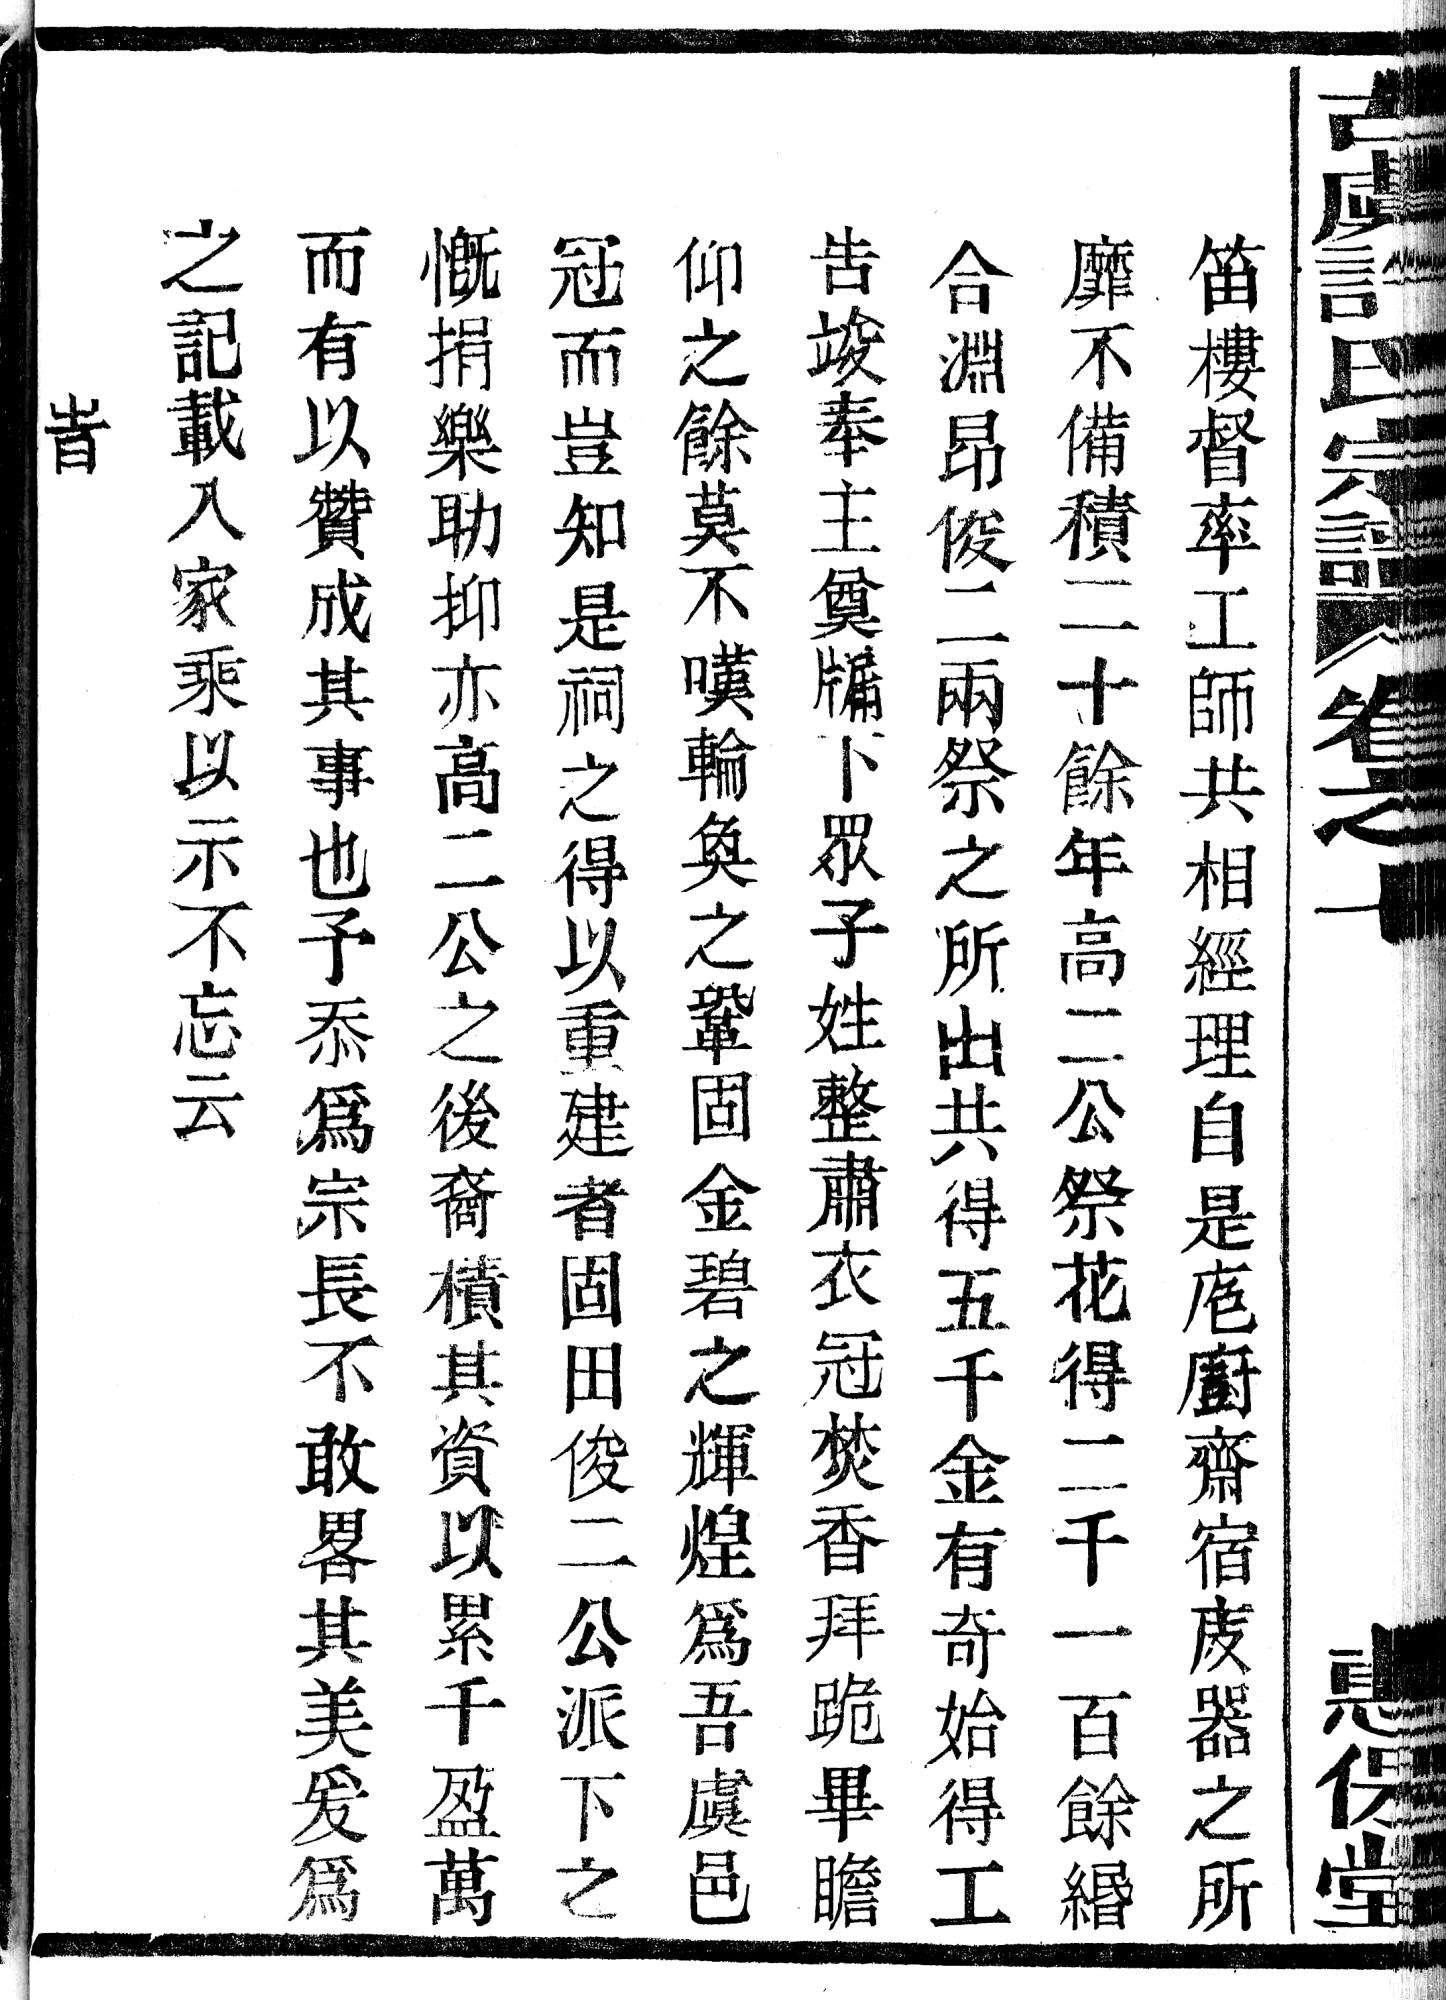 古虞許氏宗譜 卷之一 惠保堂
笛樓督率工師共相經理自是庖廚齋宿庋器之所
靡不備積二十餘年高二公祭花得二千一百餘緡
合淵昂俊二兩祭之所出共得五千金有奇始得工
告竣奉主奠牖下眾子姓整肅衣冠焚香拜跪畢瞻
仰之餘莫不嘆輪奐之鞏固金碧之輝煌爲吾虞邑
冠而豈知是祠之得以重建者固田俊二公派下之
慨捐樂助抑亦高二公之後裔積其資以累千盈萬
而有以贊成其事也予忝爲宗長不敢畧其美爰爲
之記載入家乘以示不忘云